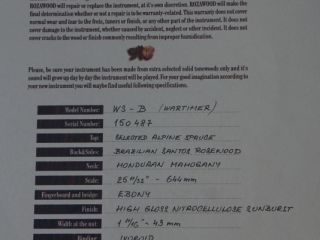 ROZAWOOD will repair or replace the instrument, at it's own discretion. ROZAWOOD will make the
final determination whether or not a repair is to be warranty-related. This warranty does not cover
normal wear and tear to the frets, tuners or finish, or any other part of the instrument. It does not
cover damage to the instrument, whether caused by accident, neglect or other incident. It does not
cover cracks to the wood or finish commonly resulting from improper humidification.
Please, be sure your instrument has been made from extra selected solid tonewoods only and it's
sound will grow up day by day the instrument will be played. For your good imagination according to
your new instrument you will maybe find useful following specifications.
Model Number: WS-B (WARTIMER)
Serial Number: 150487
Top: SELECTED ALPINE SPRUCE
Back&Sides: BRAZILIAN SANTOS ROSEWOOD
Neck: HONDURAN MAHOGANY
Scale: 25 11/32" - 644mm
Fingerboard and bridge: EBONY
Finish: HIGH GLOSS NITROCELLULOSE SUNBURST
Width at the nut: 1 11/16" - 43 mm
Binding: IVOROID